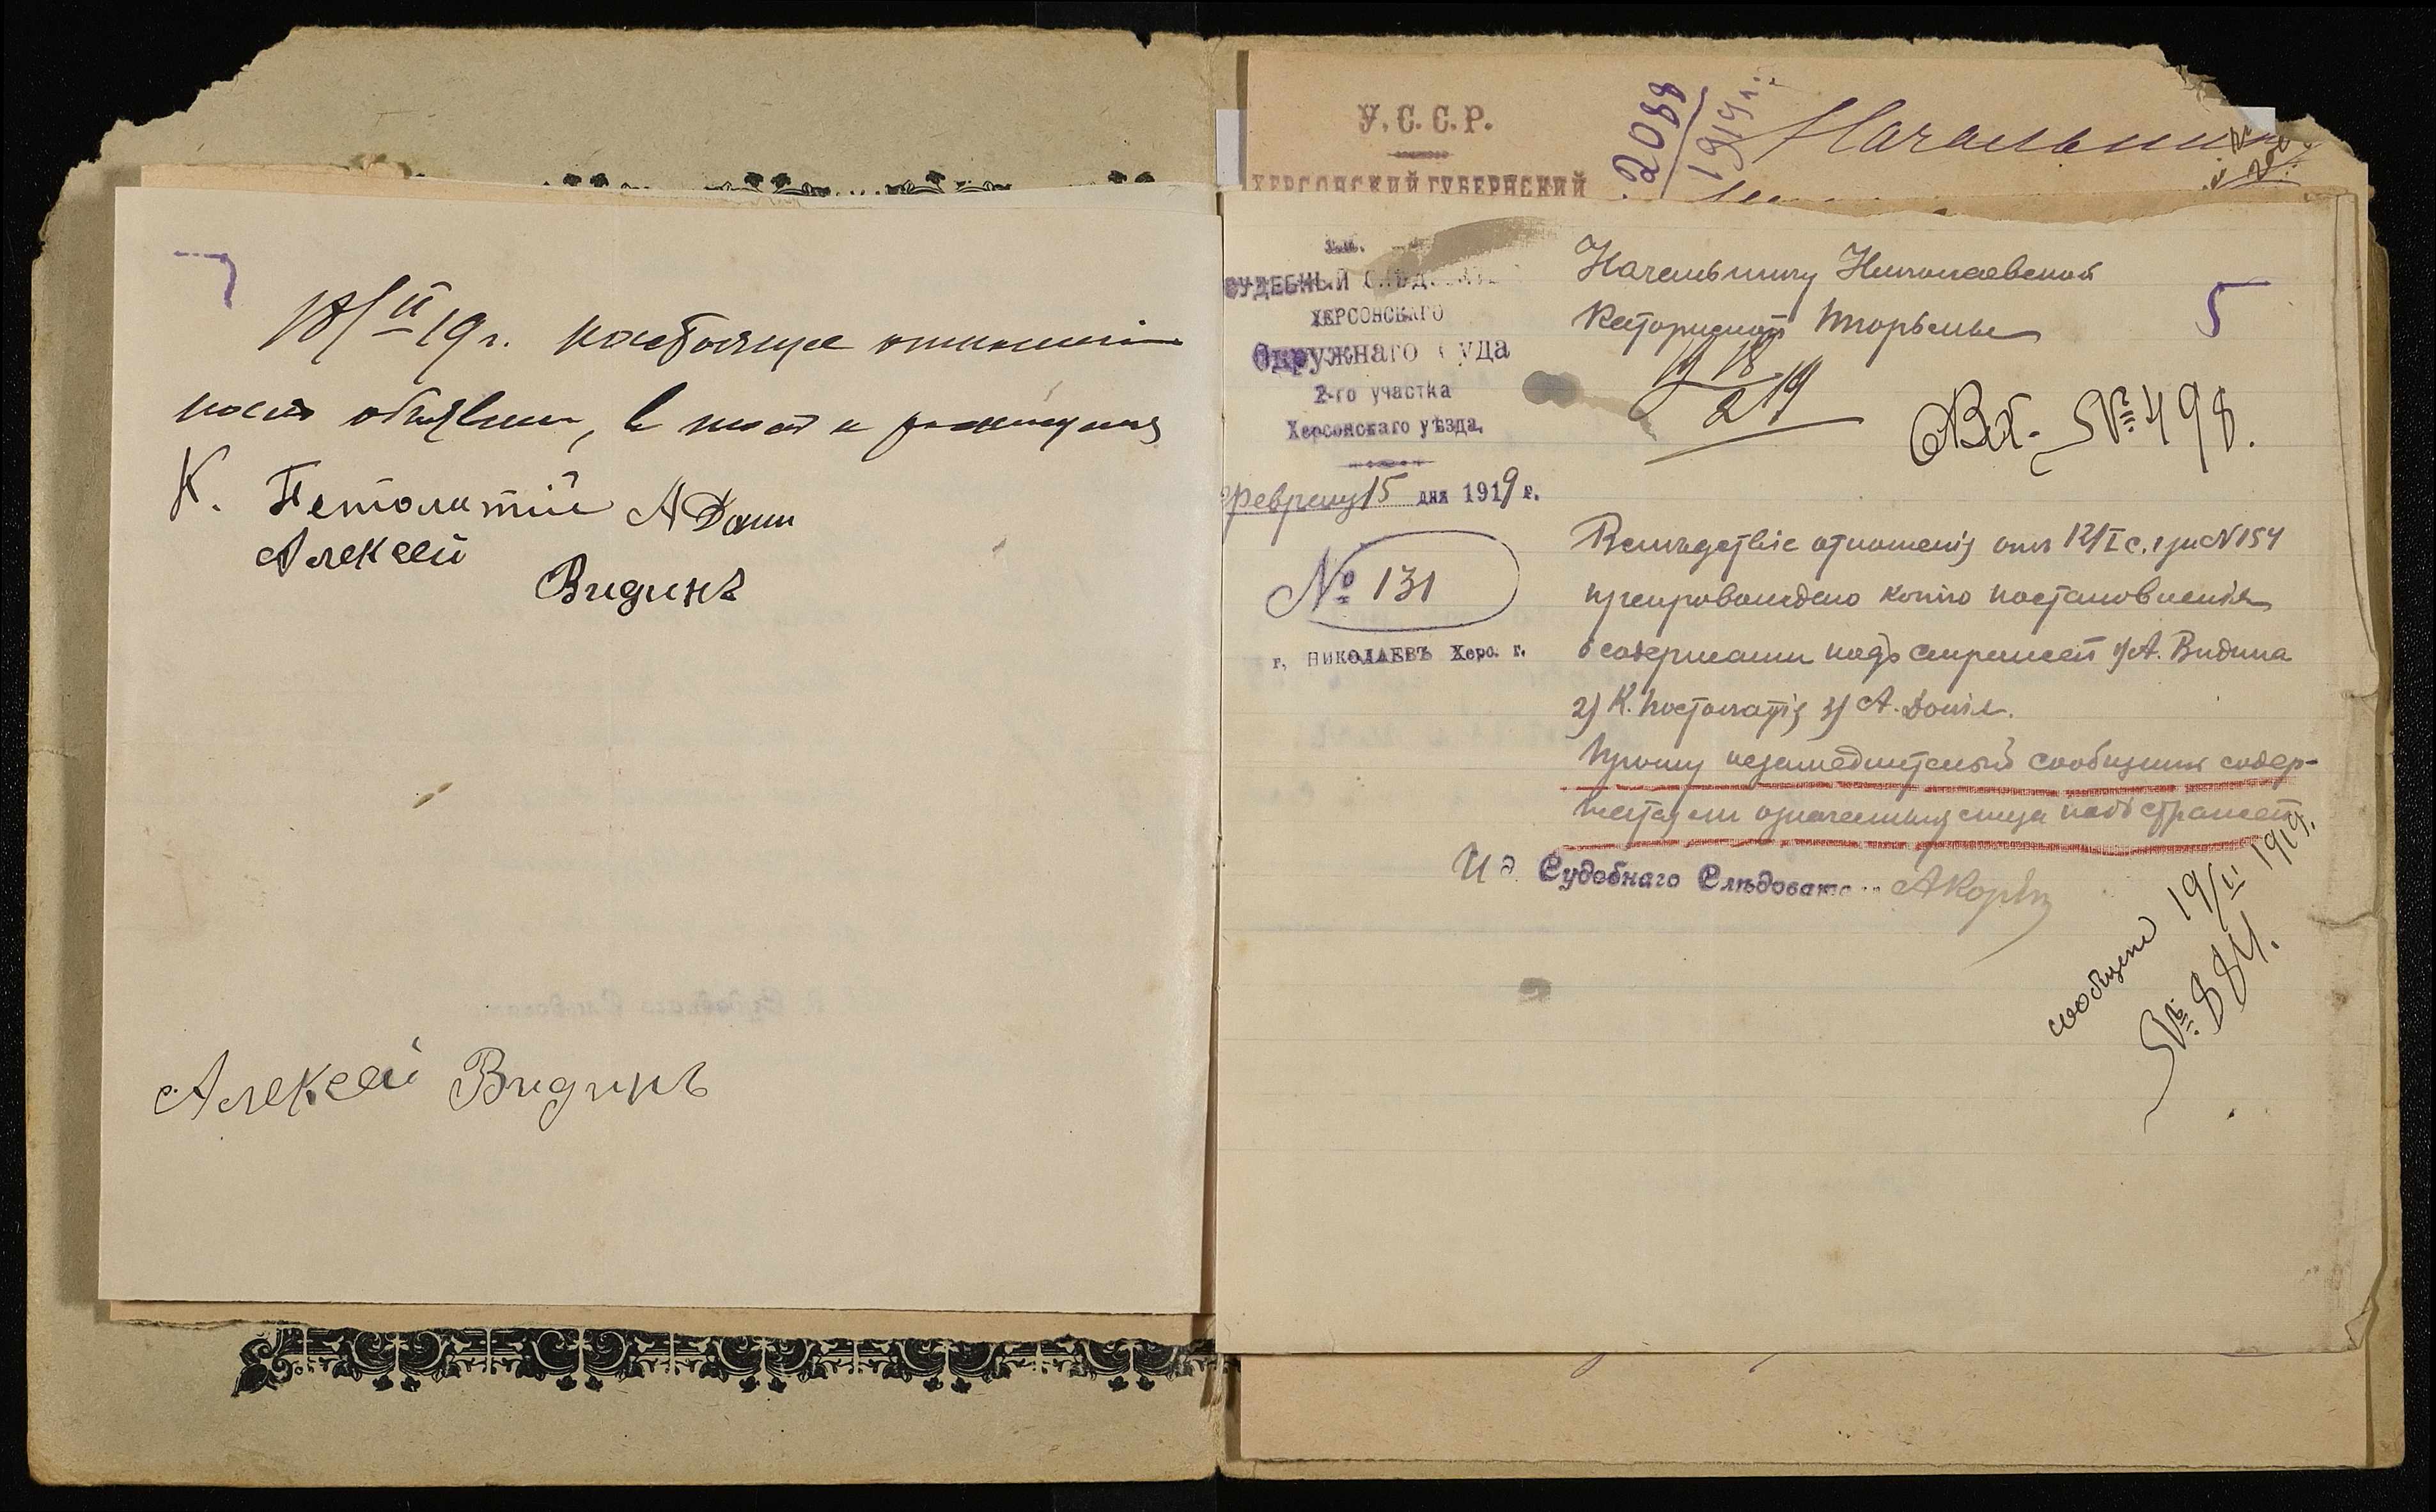 18/II 19 г. настоящее отношение
нам объявлено, в том и росписуемся
К. Петолатий А Дани
Алексей
Видинъ
Алексей Видинъ
У.С.С.Р.
ХЕРСОНСКИЙ ГУБЕРНСКИЙ
2088
1919 г.
Начальник
М. Ю.
СУДЕБНЫЙ СЛѢДОВАТ
ХЕРСОНСКАГО
Окружнаго Суда
2-го участка
Херсонскаго уѣзда,
Февраля 15 дня 1919 г.
№ 131
г. НИКОЛАЕВЪ Херс. г.
Начальнику Николаевской
Каторжной тюрьмы
5
18
2 19
Вх. № 498.
Вслѣдствіе отношенія отъ 12/I с. г. за № 154
препровождено копію постановленія
о содержаніи подъ стражей 1) А. Видина
2) К. 3) А. Дани.
Прошу незамедлительно сообщить содер-
жатся ли означенныя лица подъ стражей
И д Судебнаго Слѣдовате
сообщено 19/II 1919.
№ 884.